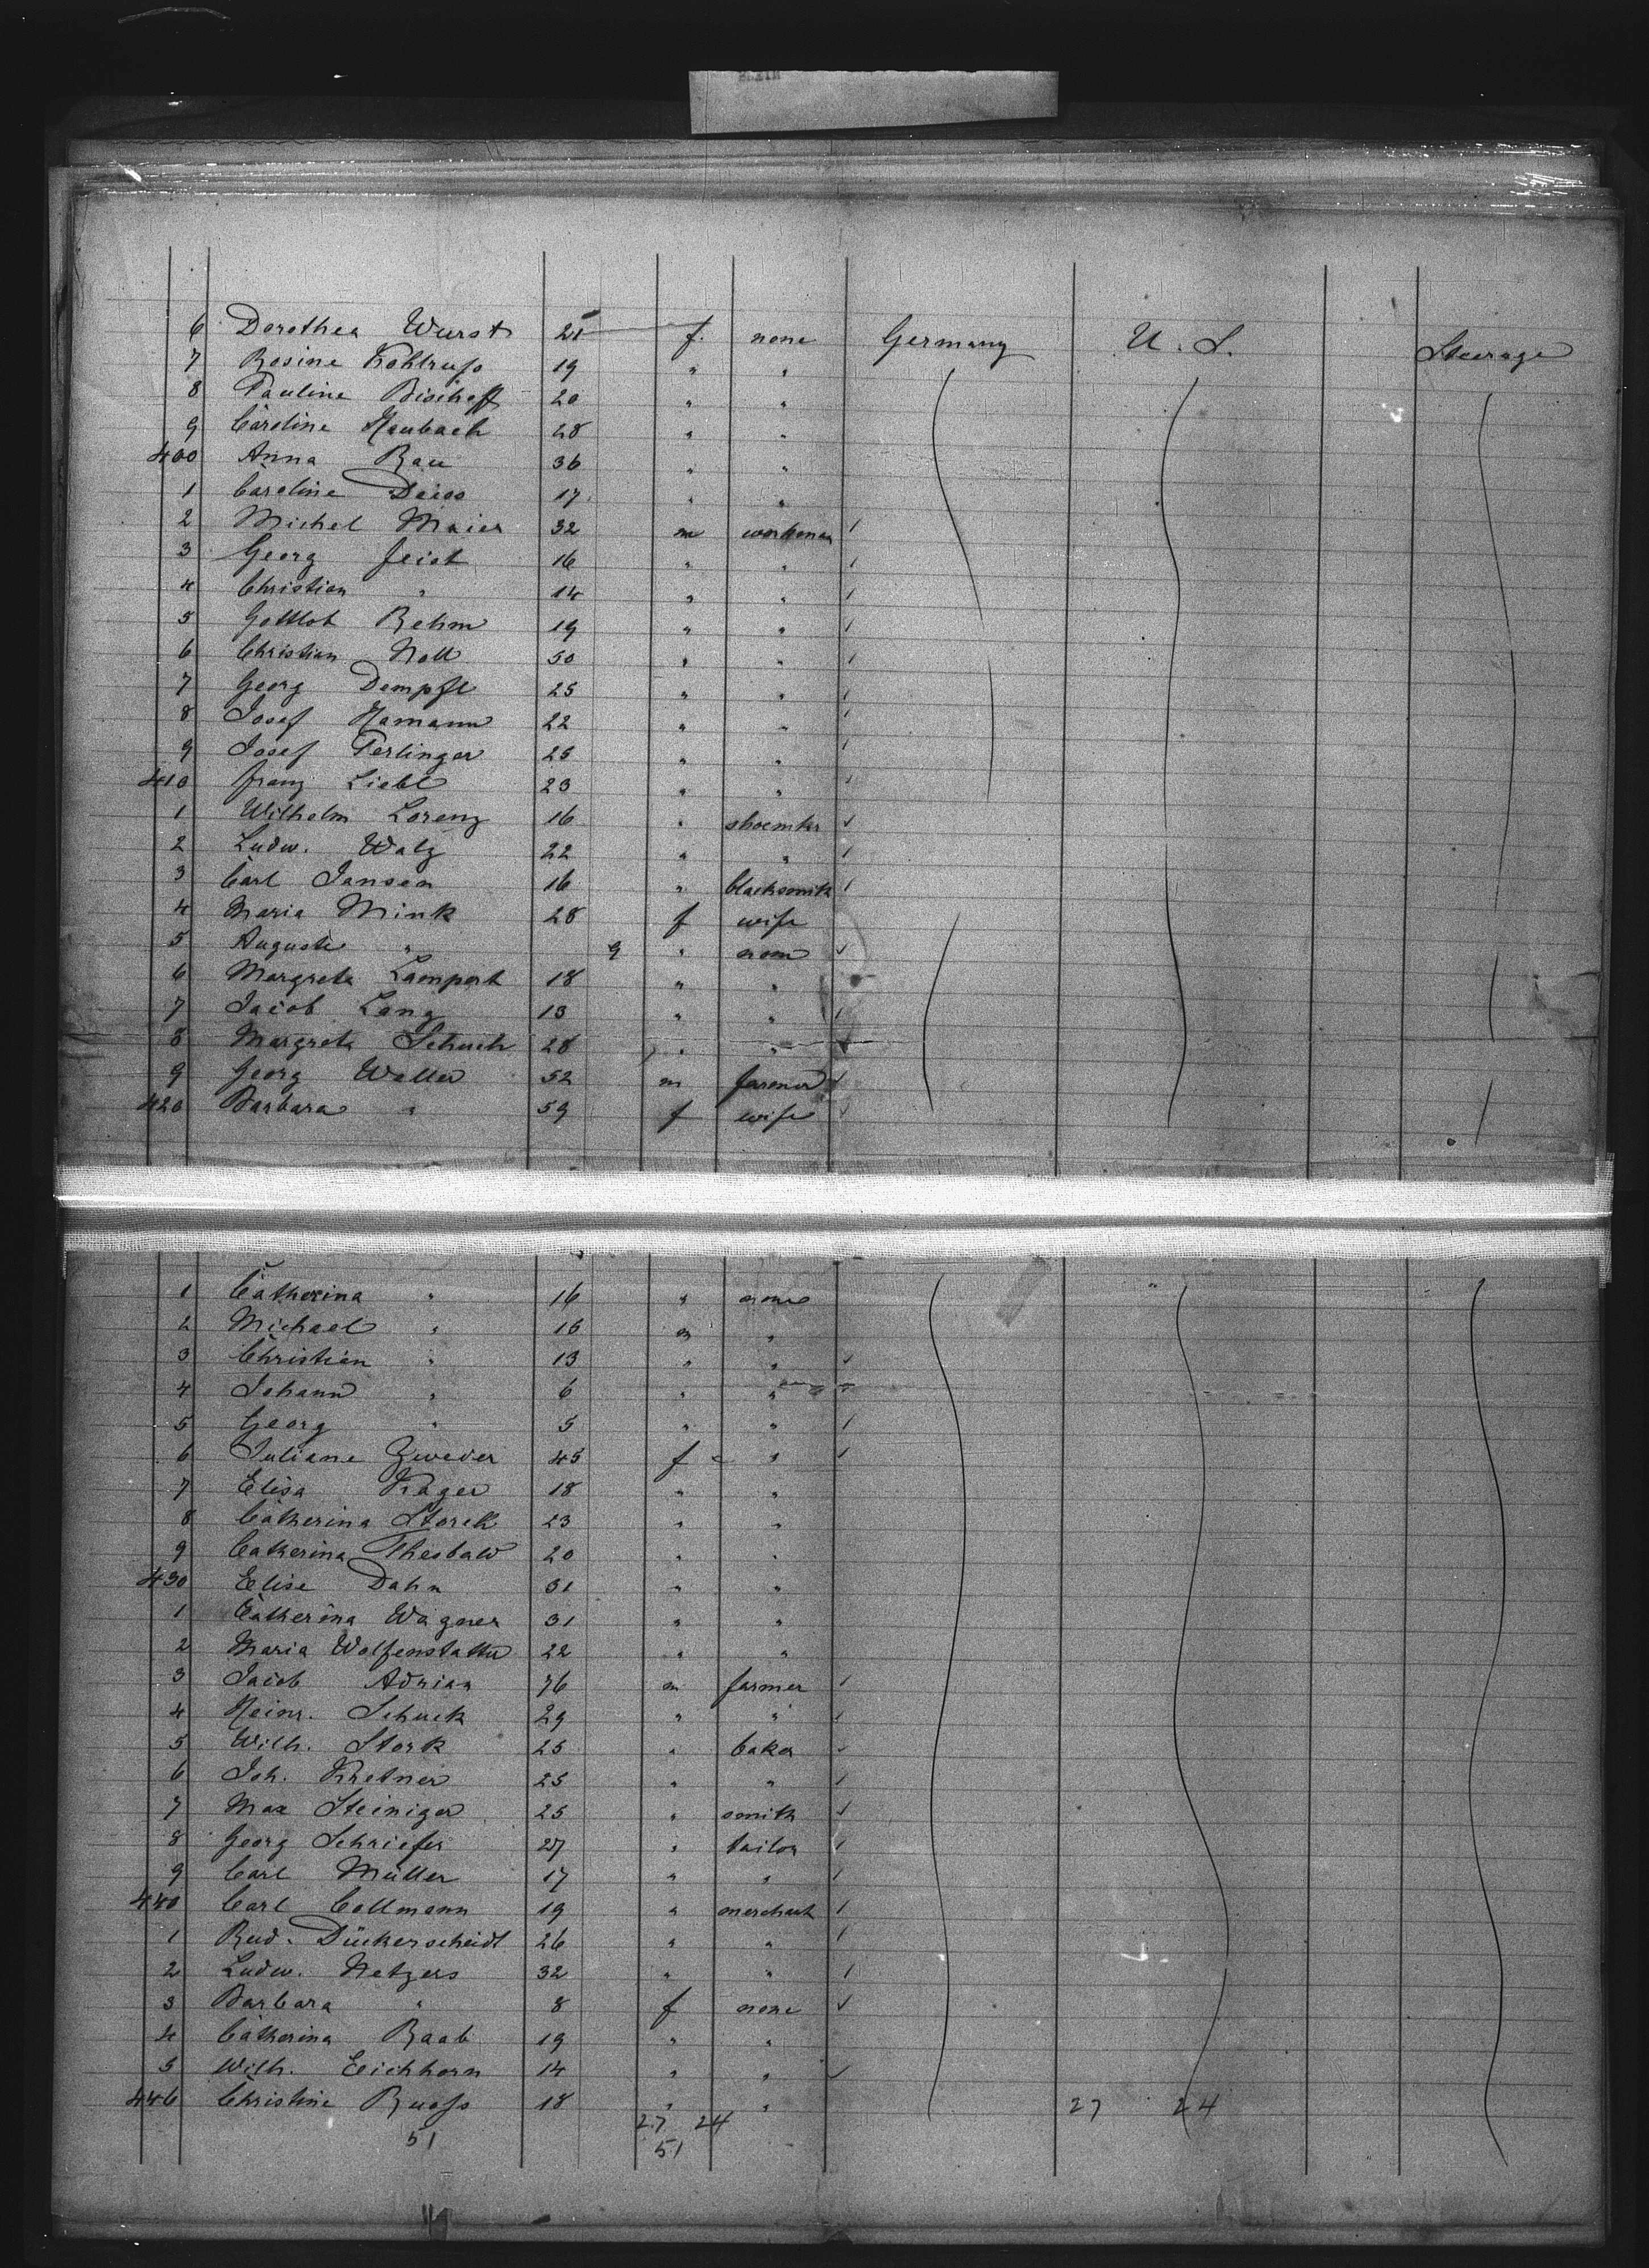 6 Dorothea Wurst 21 f. none Germany U. S. Steerage
7 Rosine Kohlruss 19 " "
8 Pauline Bischoff 20 " "
9 Caroline Haubach 28 " "
400 Anna Rau 36 " "
1 Caroline Deiss 17 " "
2 Michel Maier 32 m workman
3 Georg Feist 16 " "
4 Christian " 14 " "
5 Gottlob Rehm 19 " "
6 Christian Noll 50 " "
7 Georg Dempfl 25 " "
8 Josef Hamann 22 " "
9 Josef Perlinger 25 " "
410 Franz Liebl 23 " "
1 Wilhelm Lorenz 16 " shoemkr
2 Ludw. Walz 22 " "
3 Carl Jansen 16 " blacksmith
4 Maria Mink 28 f wife
5 Auguste " 9 " none
6 Margreta Lampert 18 " "
7 Jacob Lang 13 " "
8 Margreta Schuch 28 " "
9 Georg Walter 52 m farmer
420 Barbara " 59 f wife
1 Catherina " 16 " none
2 Michael " 16 m "
3 Christian " 13 " "
4 Johann " 6 " "
5 Georg " 5 " "
6 Juliane Zweder 45 f "
7 Elisa Kager 18 " "
8 Catherina Storck 23 " "
9 Catherina Theobald 20 " "
430 Elise Dahn 31 " "
1 Catherina Wagner 31 " "
2 Maria 22 " "
3 Jacob Adrian 76 m farmer
4 Heinr. Schuck 29 " "
5 Wilh. Stork 25 " baker
6 Joh. Kretner 25 " "
7 Max Steiniger 25 " smith
8 Georg Schriefer 27 " tailor
9 Carl Müller 17 " "
440 Carl Collmann 19 " merchant
1 Rud. Dückerscheidt 26 " "
2 Ludw. Netzers 32 " "
3 Barbara " 8 f none
4 Catherina Raab 19 " "
5 Wilh. Eichhorn 14 " "
446 Christine Ruess 18 " "
27 24 27 24
51 51